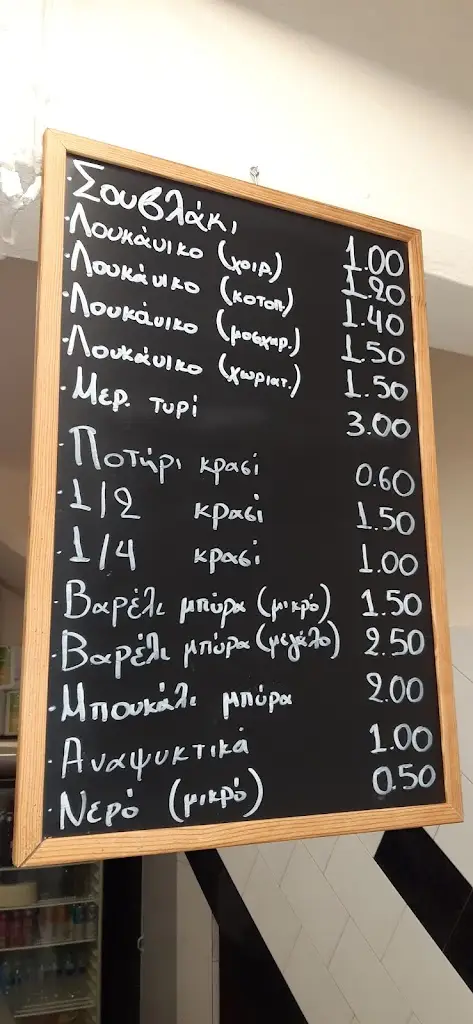 · Σουβλάκι 1.00
· Λουκάνικο (χοιρ.) 1.20
· Λουκάνικο (κοτοπ.) 1.40
· Λουκάνικο (μοσχαρ.) 1.50
· Λουκάνικο (χωριατ.) 1.50
· Μερ. τυρί 3.00
· Ποτήρι κρασί 0.60
· 1/2 κρασί 1.50
· 1/4 κρασί 1.00
· Βαρέλι μπύρα (μικρό) 1.50
· Βαρέλι μπύρα (μεγάλο) 2.50
· Μπουκάλι μπύρα 2.00
· Αναψυκτικά 1.00
· Νερό (μικρό) 0.50